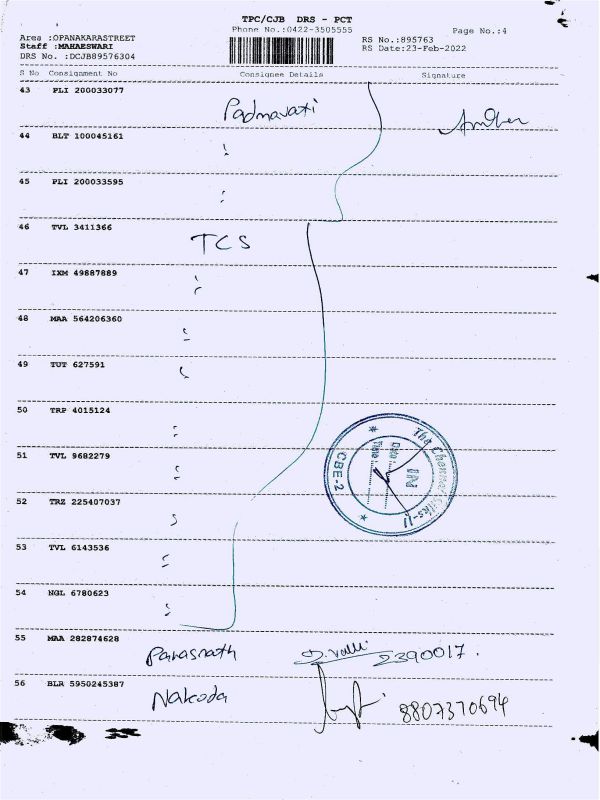 TPC/CJB DRS - PCT
Phone No.:0422-3505555
Page No.:4
Area :OPANAKARASTREET
Staff :MAHAESWARI
DRS No. :DCJB89576304
RS No.:895763
RS Date:23-Feb-2022
S No Consignment No Consignee Details Signature
43 PLI 200033077
Padmavati
44 BLT 100045161
45 PLI 200033595
46 TVL 3411366
TCS
47 IXM 49887889
48 MAA 564206360
49 TUT 627591
50 TRP 4015124
51 TVL 9682279
The Chennai Silks-II
CBE-2
IN
Date:
Time:
52 TRZ 225407037
53 TVL 6143536
54 NGL 6780623
55 MAA 282874628
Parasnath D.Valli 2390017.
56 BLR 5950245387
Nakoda 8807370694